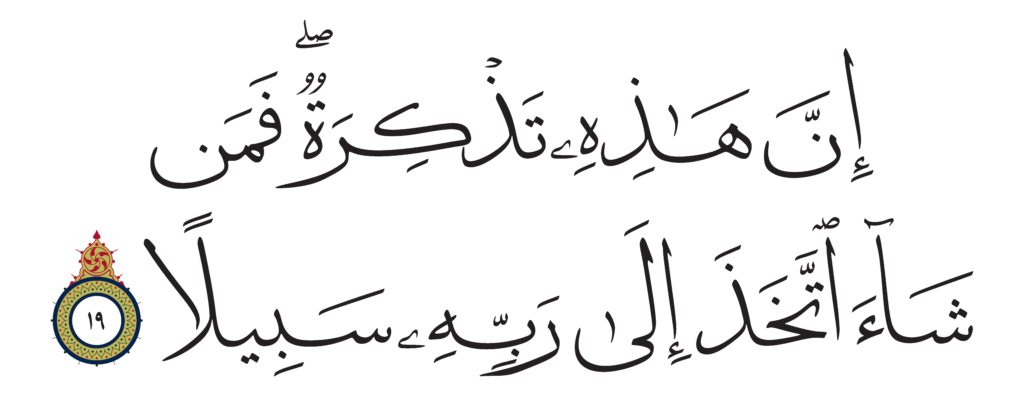 إِنَّ هَـٰذِهِۦ تَذْكِرَةٌۖ فَمَن
شَآءَ ٱتَّخَذَ إِلَىٰ رَبِّهِۦ سَبِيلًا ١٩